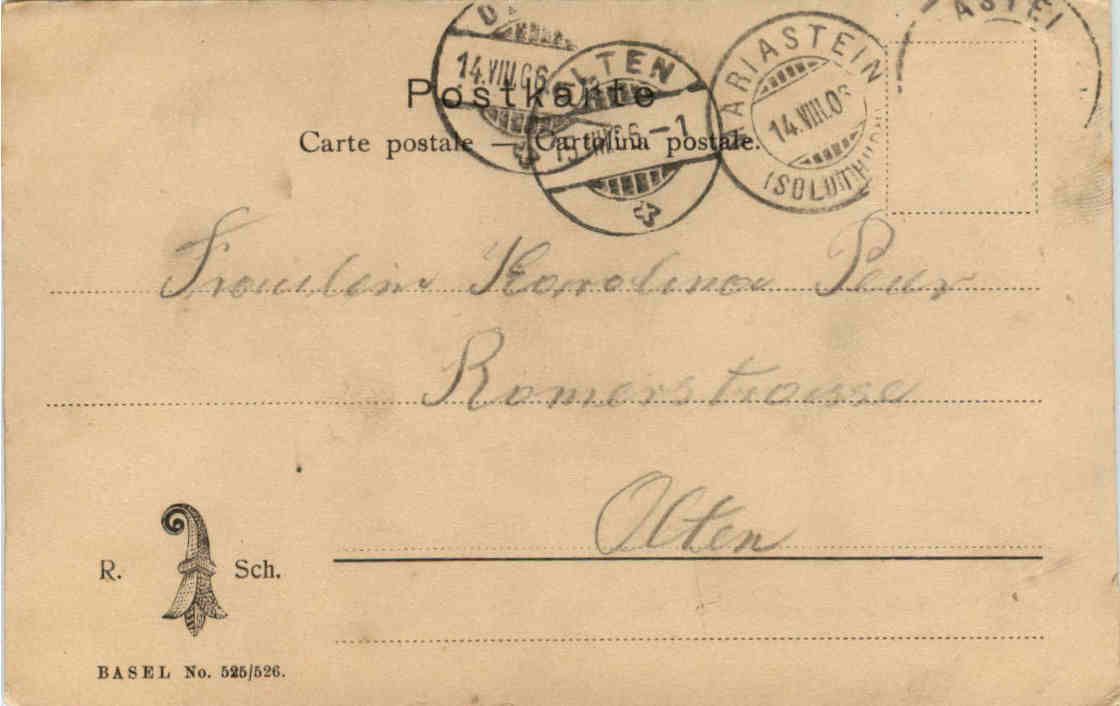 ASTEI
MARIASTEIN
14.VIII.06
(SOLOTHURN)
14.VIII.06
OLTEN
VIII.06 – 1
Postkarte
Carte postale — Cartolina postale.
Fräulein Karolina
Romerstrasse
Olten
R. Sch.
BASEL No. 525/526.